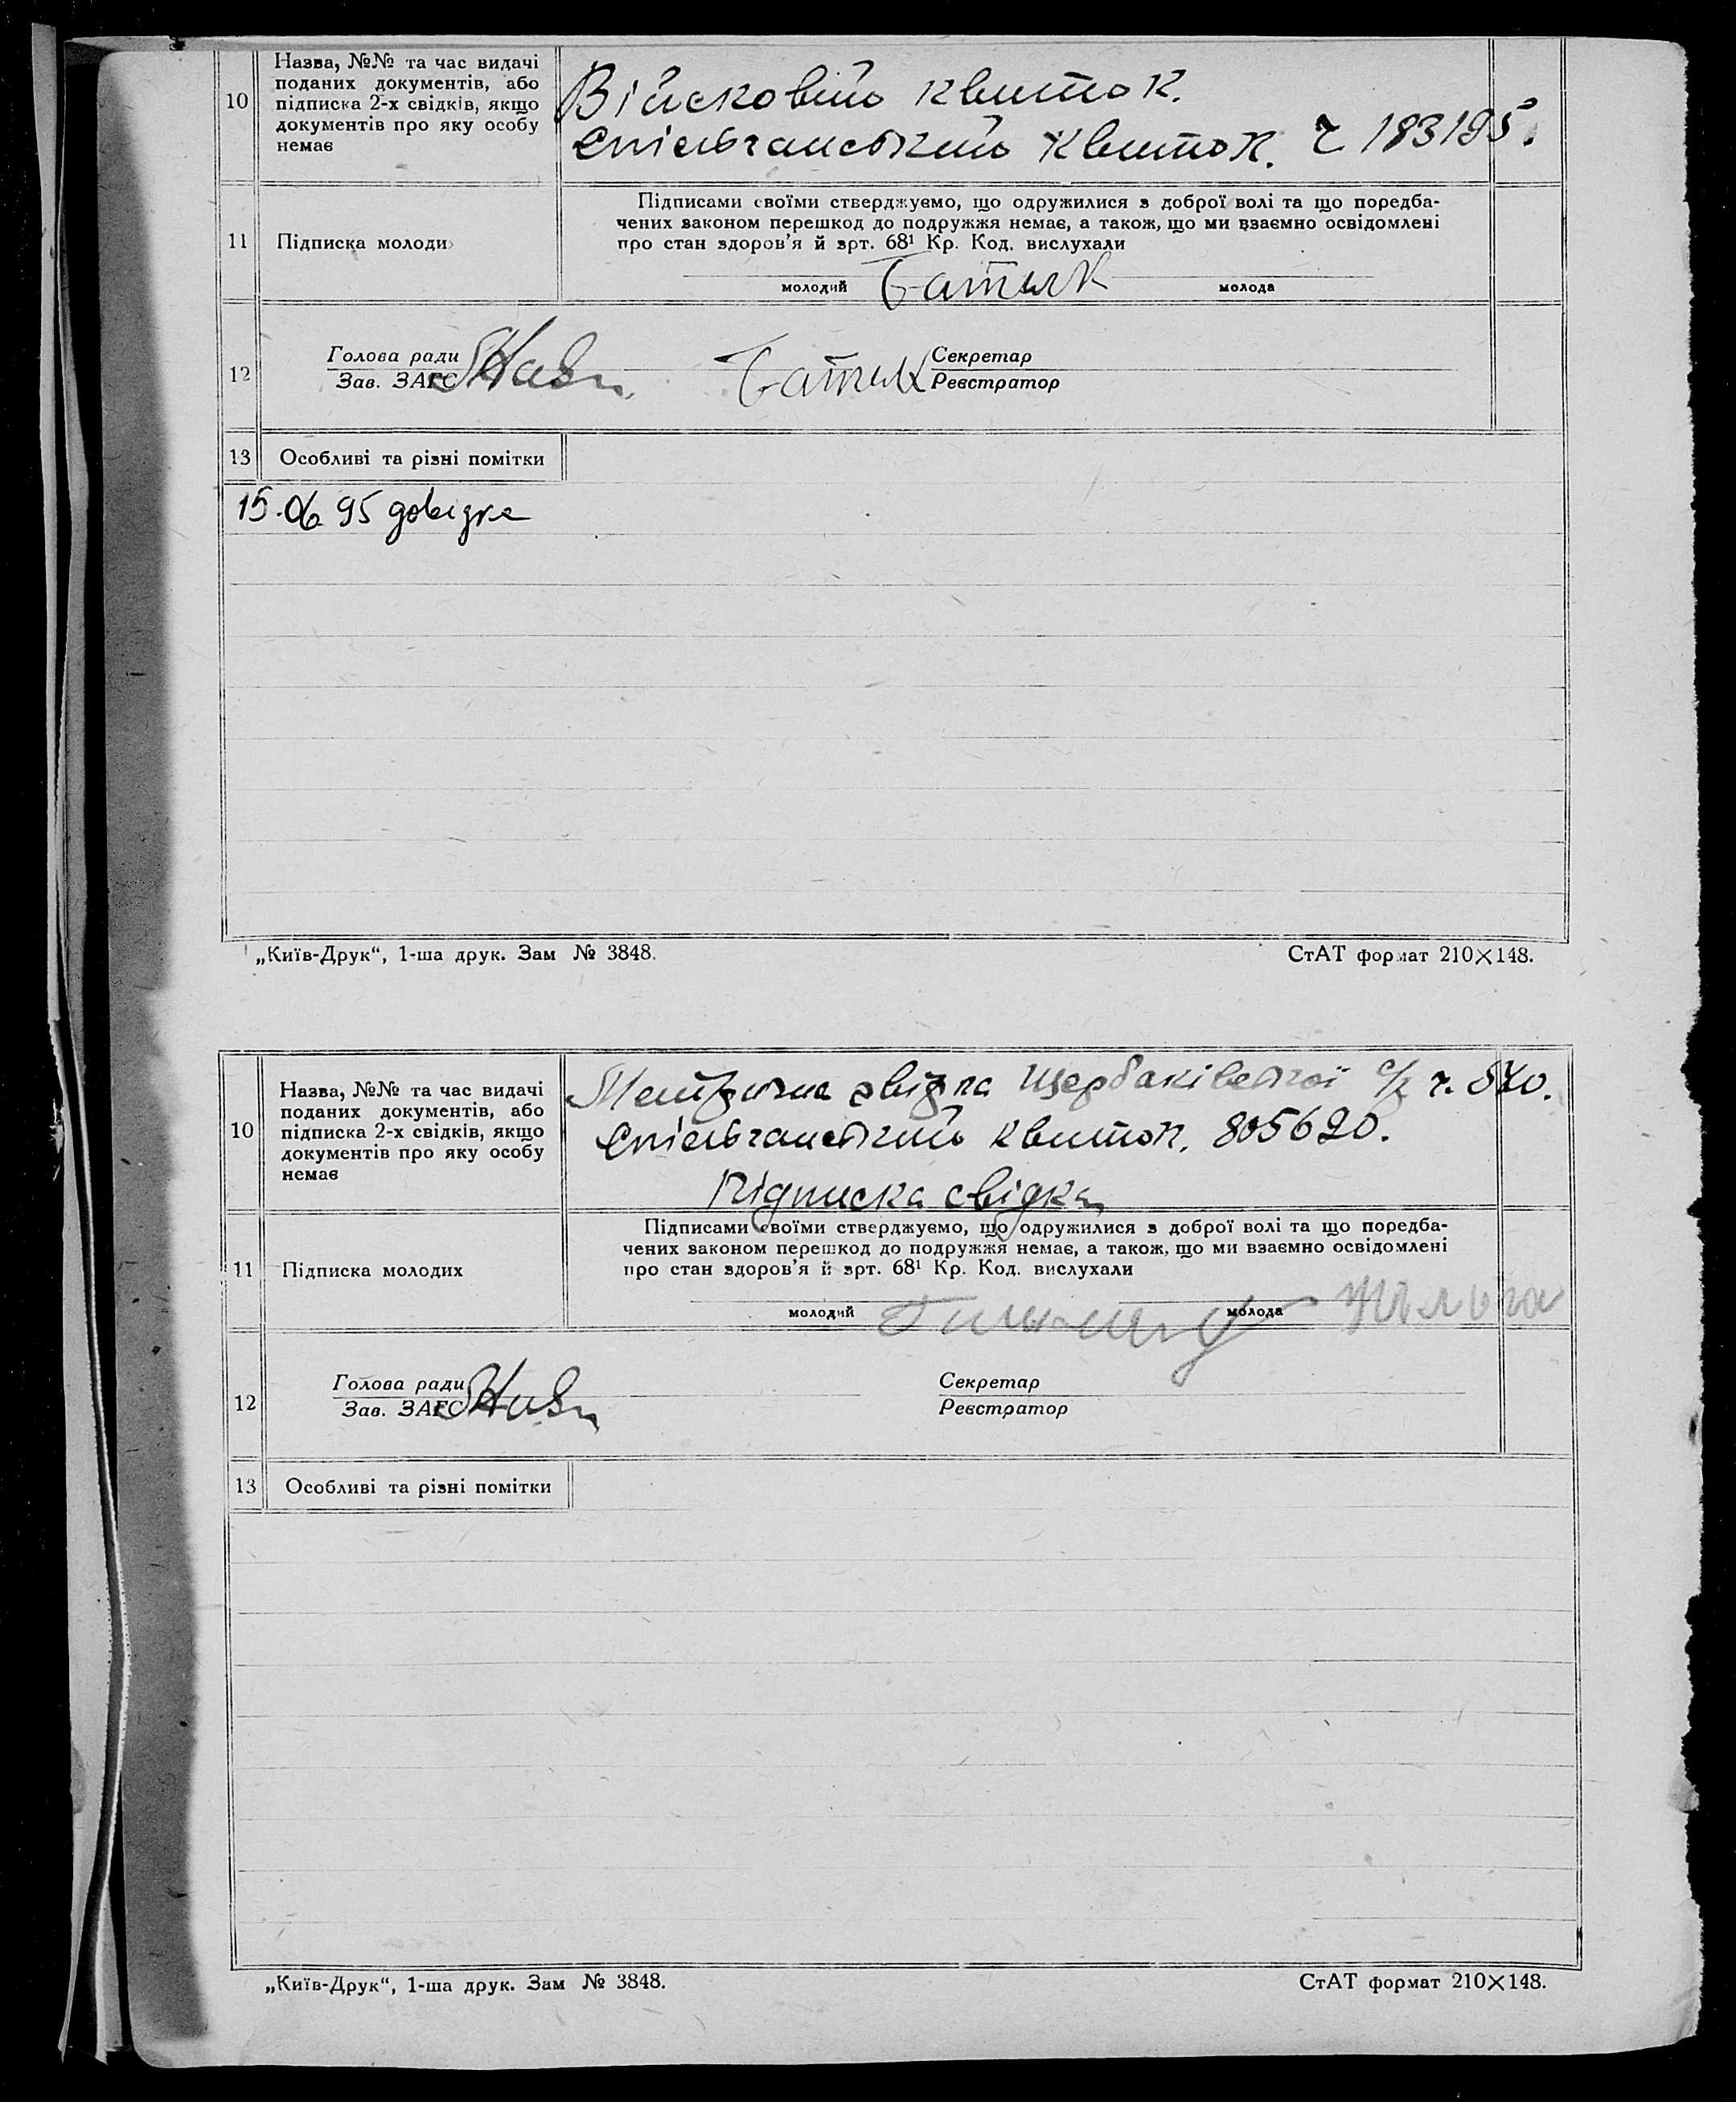 10
Назва, №№ та час видачі
поданих документів, або
підписка 2-х свідків, якщо
документів про яку особу
немає
Військовий квиток.
Спілчанський квиток. ч 183195.
11
Підписка молоди
Підписами своїми стверджуємо, що одружилися з доброї волі та що поредба-
чених законом перешкод до подружжя немає, а також, що ми взаємно освідомлені
про стан здоров'я й арт. 68¹ Кр. Код. вислухали
молодий
молода
12
Голова ради
Зав. ЗАГС
Секретар
Реєстратор
13
Особливі та різні помітки
15.06 95 довідка
„Київ-Друк“, 1-ша друк. Зам № 3848.
СтАТ формат 210×148.
10
Назва, №№ та час видачі
поданих документів, або
підписка 2-х свідків, якщо
документів про яку особу
немає
Метрична Щербаківської с/р ч. 540.
Спілчанський квиток. 805620.
Підписка свідка
11
Підписка молодих
Підписами своїми стверджуємо, що одружилися з доброї волі та що поредба-
чених законом перешкод до подружжя немає, а також, що ми взаємно освідомлені
про стан здоров'я й арт. 68¹ Кр. Код. вислухали
молодий
молода
12
Голова ради
Зав. ЗАГС
Секретар
Реєстратор
13
Особливі та різні помітки
„Київ-Друк“, 1-ша друк. Зам № 3848.
СтАТ формат 210×148.